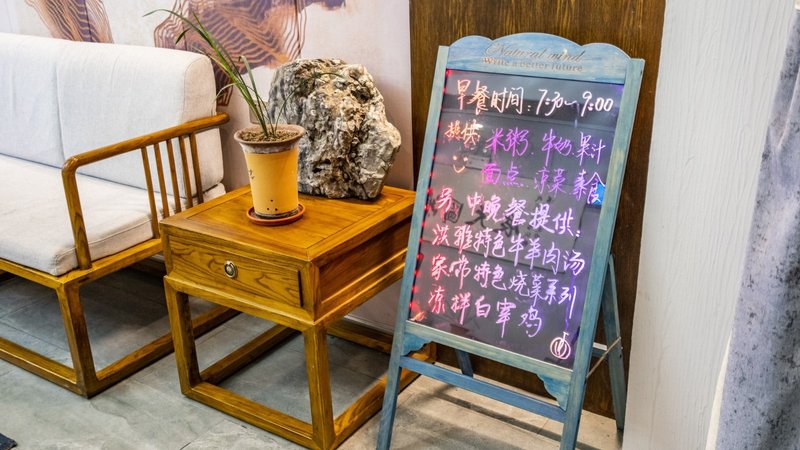 Natural mind
Write a better future
早餐时间：7:30～9:00
提供 米粥 牛奶.果汁
面点.凉菜 素食
另 中晚餐提供：
洪雅特色牛羊肉汤
家常特色烧菜系列
凉拌白宰鸡